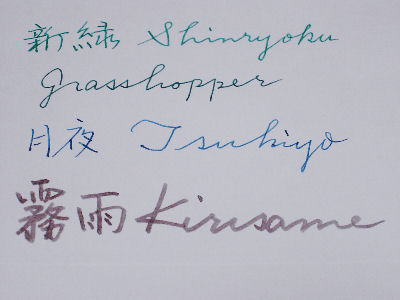 新緑 Shinryoku
grasshopper
月夜 Tsukiyo
霧雨 Kirisame